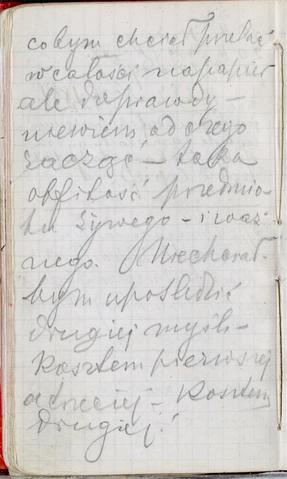 cobym chciał przelać
w całości na papier
ale doprawdy –
niewiem od czego
zacząć – taka
obfitość przedmio-
tu żywego – i waż-
nego. Niechciał-
bym upośledzić
drugiej myśli –
kosztem pierwszej
a trzeciej – kosztem
drugiej!